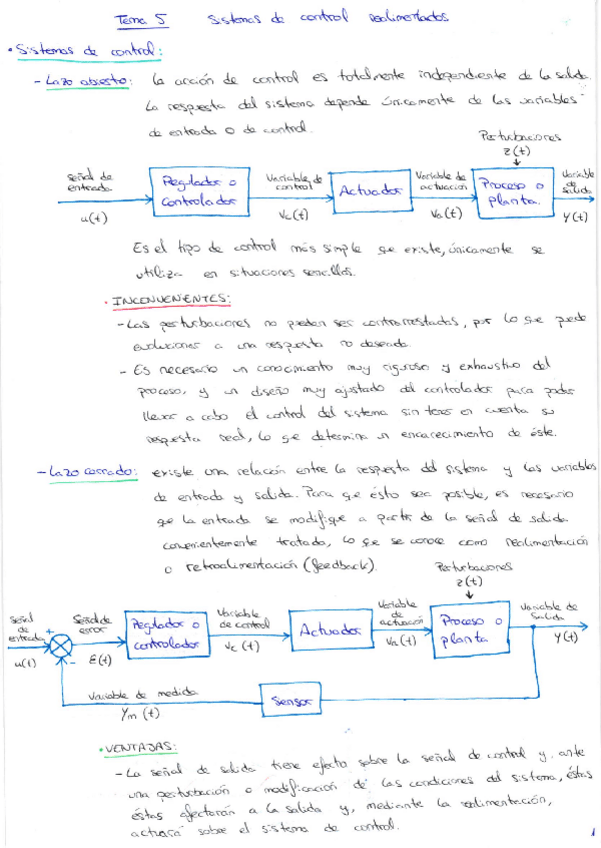 Tema 5 Sistemas de control realimentados
• Sistemas de control:
- Lazo abierto: la acción de control es totalmente independiente de la salida.
La respuesta del sistema depende únicamente de las variables
de entrada o de control.
Perturbaciones
z(t)
Señal de entrada
u(t)
Regulador o controlador
Variable de control
Vc(t)
Actuador
Variable de actuación
Va(t)
Proceso o planta.
Variable de salida
Y(t)
Es el tipo de control más simple que existe, únicamente se
utiliza en situaciones sencillas.
• INCONVENIENTES:
- Las perturbaciones no pueden ser contrarrestadas, por lo que puede
evolucionar a una respuesta no deseada.
- Es necesario un conocimiento muy riguroso y exhaustivo del
proceso, y un diseño muy ajustado del controlador para poder
llevar a cabo el control del sistema sin tener en cuenta su
respuesta real, lo que determina un encarecimiento de éste.
- Lazo cerrado: existe una relación entre la respuesta del sistema y las variables
de entrada y salida. Para que ésto sea posible, es necesario
que la entrada se modifique a partir de la señal de salida
convenientemente tratada, lo que se conoce como realimentación
o retroalimentación (feedback).
Perturbaciones
z(t)
Señal de entrada
u(t)
+
-
Señal de error
E(t)
Regulador o controlador
Variable de control
Vc(t)
Actuador
Variable de actuación
Va(t)
Proceso o planta
Variable de salida
Y(t)
Variable de medida
Ym(t)
Sensor
• VENTAJAS:
- La señal de salida tiene efecto sobre la señal de control y, ante
una perturbación o modificación de las condiciones del sistema, éstas
éstas afectarán a la salida y, mediante la realimentación,
actuará sobre el sistema de control.
1